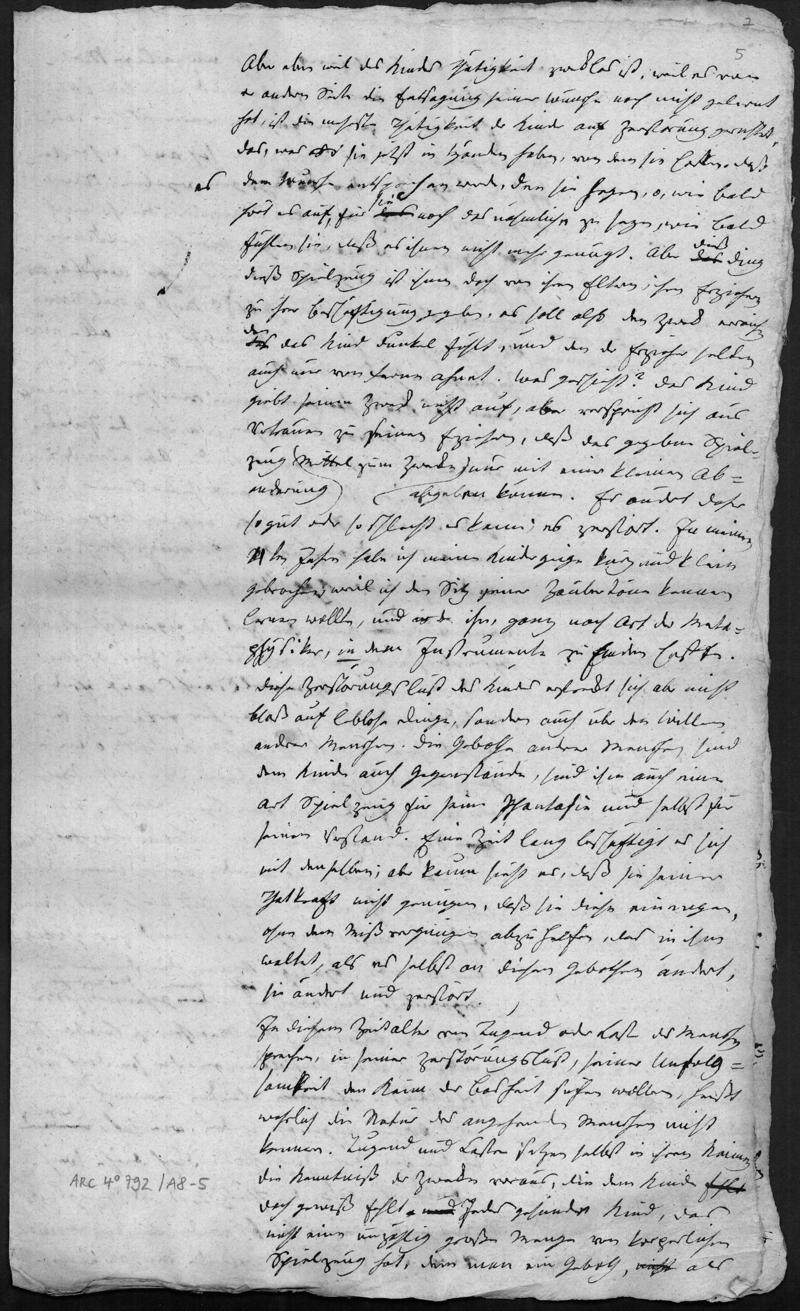 7
5
Aber eben weil des Kindes Thätigkeit zwecklos ist, weil es von
der andern Seite die Entsagung seiner Wünsche noch nicht gelernt
hat, ist die meiste Thätigkeit der Kinder auf Zerstörung gerichtet,
das, was sie jetzt in Händen haben, von dem sie hoffen, daß
es dem Wunsche entsprechen werde, den sie hegen, o, wie bald
hört es auf, für sie noch das nämliche zu seyn, wie bald
fühlen sie, daß es ihnen nicht mehr genügt. Aber dieß Ding
dieß Spielzeug ist ihnen doch von ihren Eltern, ihren Erziehern
zu ihrer Beschäftigung gegeben, es soll also den Zweck erreichen
den das Kind dunkel fühlt, und den der Erzieher selten
auch nur von ferne ahnet. Was geschieht? das Kind
giebt seinen Zweck nicht auf, aber verspricht sich aus
Vertrauen zu seinen Erziehern, daß das gegebene Spiel-
zeug Mittel zum Zwecke nur mit einer kleinen Ab-
änderung abgeben könne. Es ändert daher
so gut oder so schlecht es kann; es zerstört. In meinem
11ten Jahre habe ich meine Kindergeige kurz und klein
gebrochen, weil ich den Sitz jener Zaubertöne kennen
lernen wollte, und ihn, ganz nach Art der Meta-
physiker, in dem Instrumente zu finden hoffte.
Diese Zerstörungslust des Kindes erstreckt sich aber nicht
bloß auf leblose Dinge, sondern auch über den Willen
andrer Menschen. Die Gebothe andrer Menschen sind
dem Kinde auch Gegenstände, sind ihm auch eine
Art Spielzeug für seine Phantasie und selbst für
seinen Verstand. Eine Zeit lang beschäftigt es sich
mit denselben; aber kaum sieht es, daß sie seiner
Thatkraft nicht genügen, daß sie diese einengen,
ohne dem Mißvergnügen abzuhelfen, das in ihm
waltet, als es selbst an diesen Gebothen ändert,
sie ändert und zerstört.
In diesem Zeitalter von Tugend oder Laster des Menschen
sprechen, in seiner Zerstörungslust, seiner Unfolg-
samkeit den Keim der Bosheit sehen wollen, heißt
wahrlich die Natur des angehenden Menschen nicht
kennen. Tugend und Laster setzen selbst in ihren Keimen
die Kenntniß der Zwecke voraus, die dem Kinde
doch gewiß fehlt. Jedes gesunde Kind, das
nicht eine unzählig große Menge von körperlichen
Spielzeug hat, dem man ein Geboth, als
ARC 4° 792 / A8-5